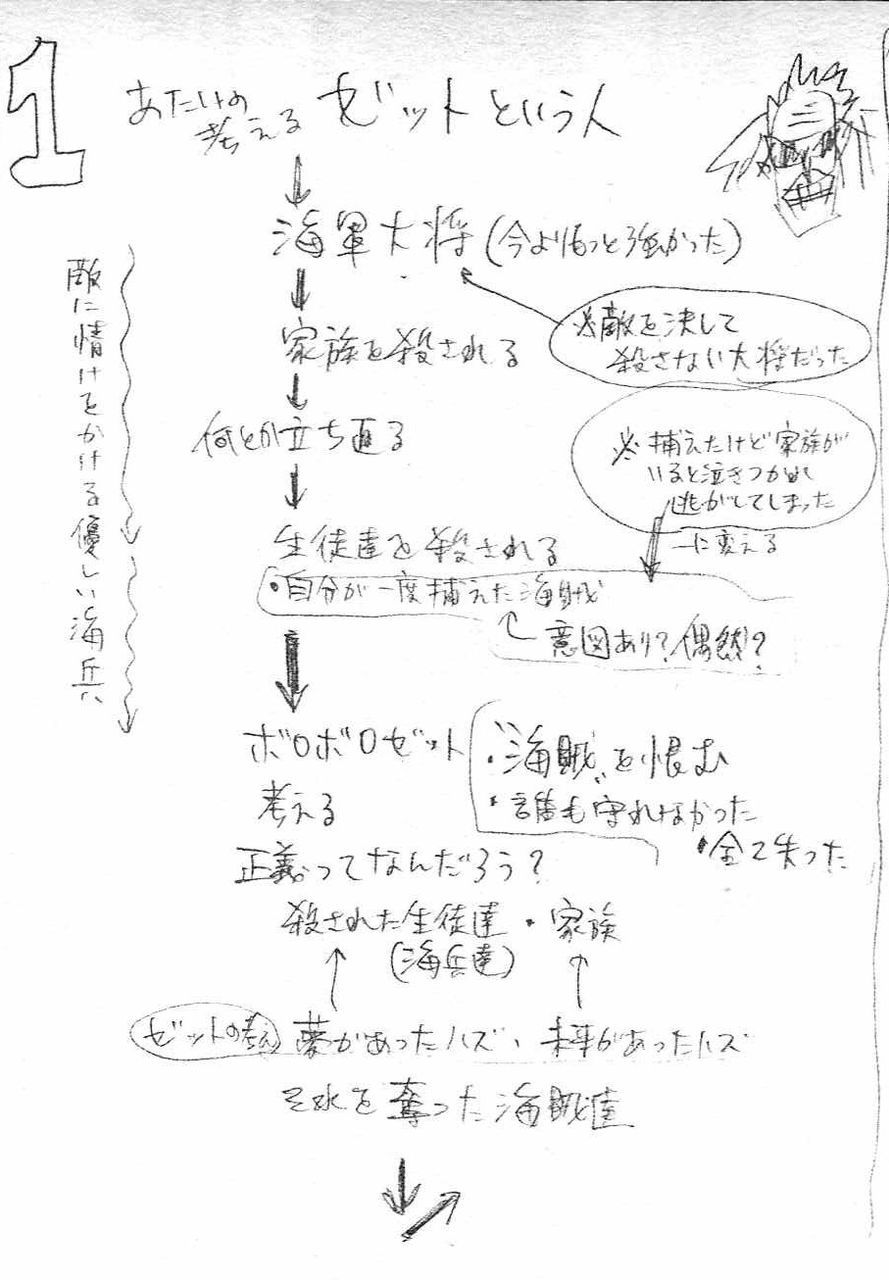 1
あたいの
考える ゼットという人
海軍大将(今よりもっと強かった)
※敵を決して
殺さない大将だった
家族を殺される
何とか立ち直る
※捕えたけど家族が
いると泣きつかれ
逃がしてしまった
に変える
生徒達を殺される
・自分が一度捕えた海賊
意図あり?偶然?
敵に情けをかける優しい海兵
ボロボロゼット
考える
・"海賊"を恨む
・誰も守れなかった
・全て失った
正義ってなんだろう?
殺された生徒達・家族
(海兵達)
ゼットの考え 夢があったハズ、未来があったハズ
それを奪った海賊達